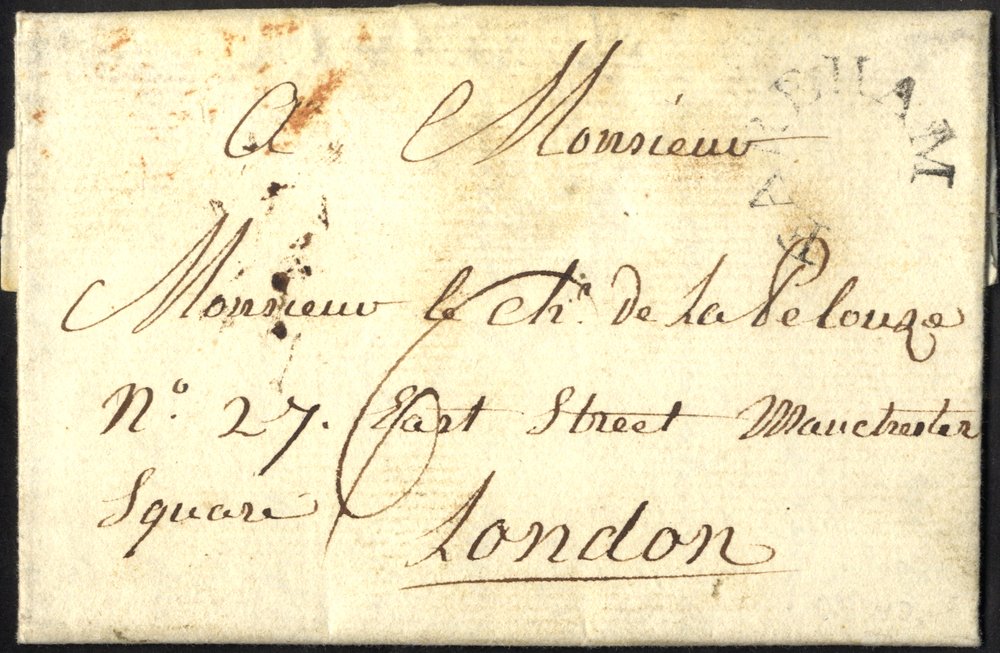 FAREHAM
A Monsieur
Monsieur le Chr. de La Pelouze
No. 27. East Street Manchester
Square
6
London